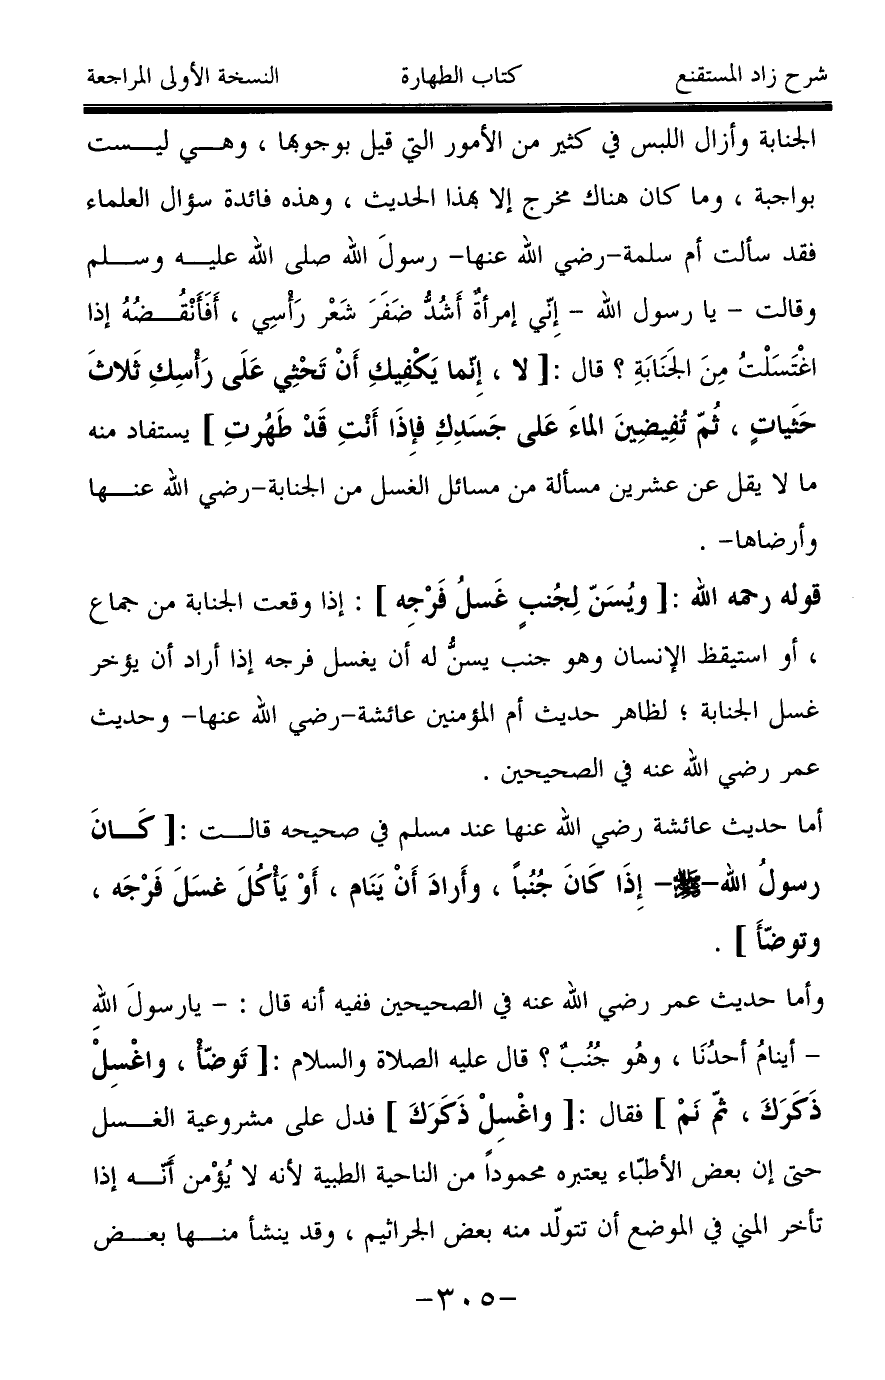 شرح زاد المستقنع كتاب الطهارة النسخة الأولى المراجعة
الجنابة وأزال اللبس في كثير من الأمور التي قيل بوجوبها ، وهـــي ليـــست
بواجبة ، وما كان هناك مخرج إلا بهذا الحديث ، وهذه فائدة سؤال العلماء
فقد سألت أم سلمة-رضي الله عنها- رسولَ الله صلى الله عليـــه وســـلم
وقالت - يا رسول الله - إنّي إمرأةٌ أَشُدُّ ضَفَرَ شَعْر رَأْسِي ، أَفَأَنْقُـــضُهُ إذا
اغْتَسَلْتُ مِنَ الجَنَابَةِ ؟ قال :[ لا ، إِنّما يَكْفِيكِ أَنْ تَحْثِي عَلَى رَأْسِكِ ثَلاثَ
حَثَياتٍ ، ثُمّ تُفِيضِينَ الماءَ عَلى جَسَدِكِ فإِذَا أَنْتِ قَدْ طَهُرتِ ] يستفاد منه
ما لا يقل عن عشرين مسألة من مسائل الغسل من الجنابة-رضي الله عنـــها
وأرضاها- .
قوله رحمه الله :[ ويُسَنّ لِجُنبٍ غَسلُ فَرْجِه ] : إذا وقعت الجنابة من جماع
، أو استيقظ الإنسان وهو جنب يسنُّ له أن يغسل فرجه إذا أراد أن يؤخر
غسل الجنابة ؛ لظاهر حديث أم المؤمنين عائشة-رضي الله عنها- وحديث
عمر رضي الله عنه في الصحيحين .
أما حديث عائشة رضي الله عنها عند مسلم في صحيحه قالـــت :[ كَـــانَ
رسولُ الله-ﷺ- إِذَا كَانَ جُنُباً ، وأَرادَ أَنْ يَنَام ، أَوْ يَأْكُلَ غسَلَ فَرْجَه ،
وتوضّأَ ] .
وأما حديث عمر رضي الله عنه في الصحيحين ففيه أنه قال : - يارسولَ اللهِ
- أينامُ أحدُنَا ، وهُو جُنُبٌ ؟ قال عليه الصلاة والسلام :[ تَوضّأْ ، واغْسِلْ
ذَكَرَكَ ، ثمّ نَمْ ] فقال :[ واغْسِلْ ذَكَرَكَ ] فدل على مشروعية الغـــسل
حتى إن بعض الأطبّاء يعتبره محموداً من الناحية الطبية لأنه لا يُؤْمن أنّـــه إذا
تأخر المني في الموضع أن تتولّد منه بعض الجراثيم ، وقد ينشأ منـــها بعـــض
-٣٠٥-